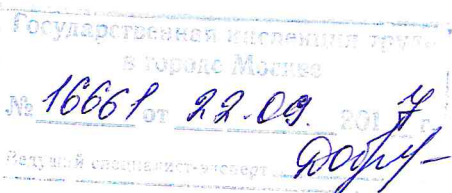 Государственная инспекция труда
в городе Москве
№ 16661 от 22.09. 2017 г.
Ведущий специалист-эксперт